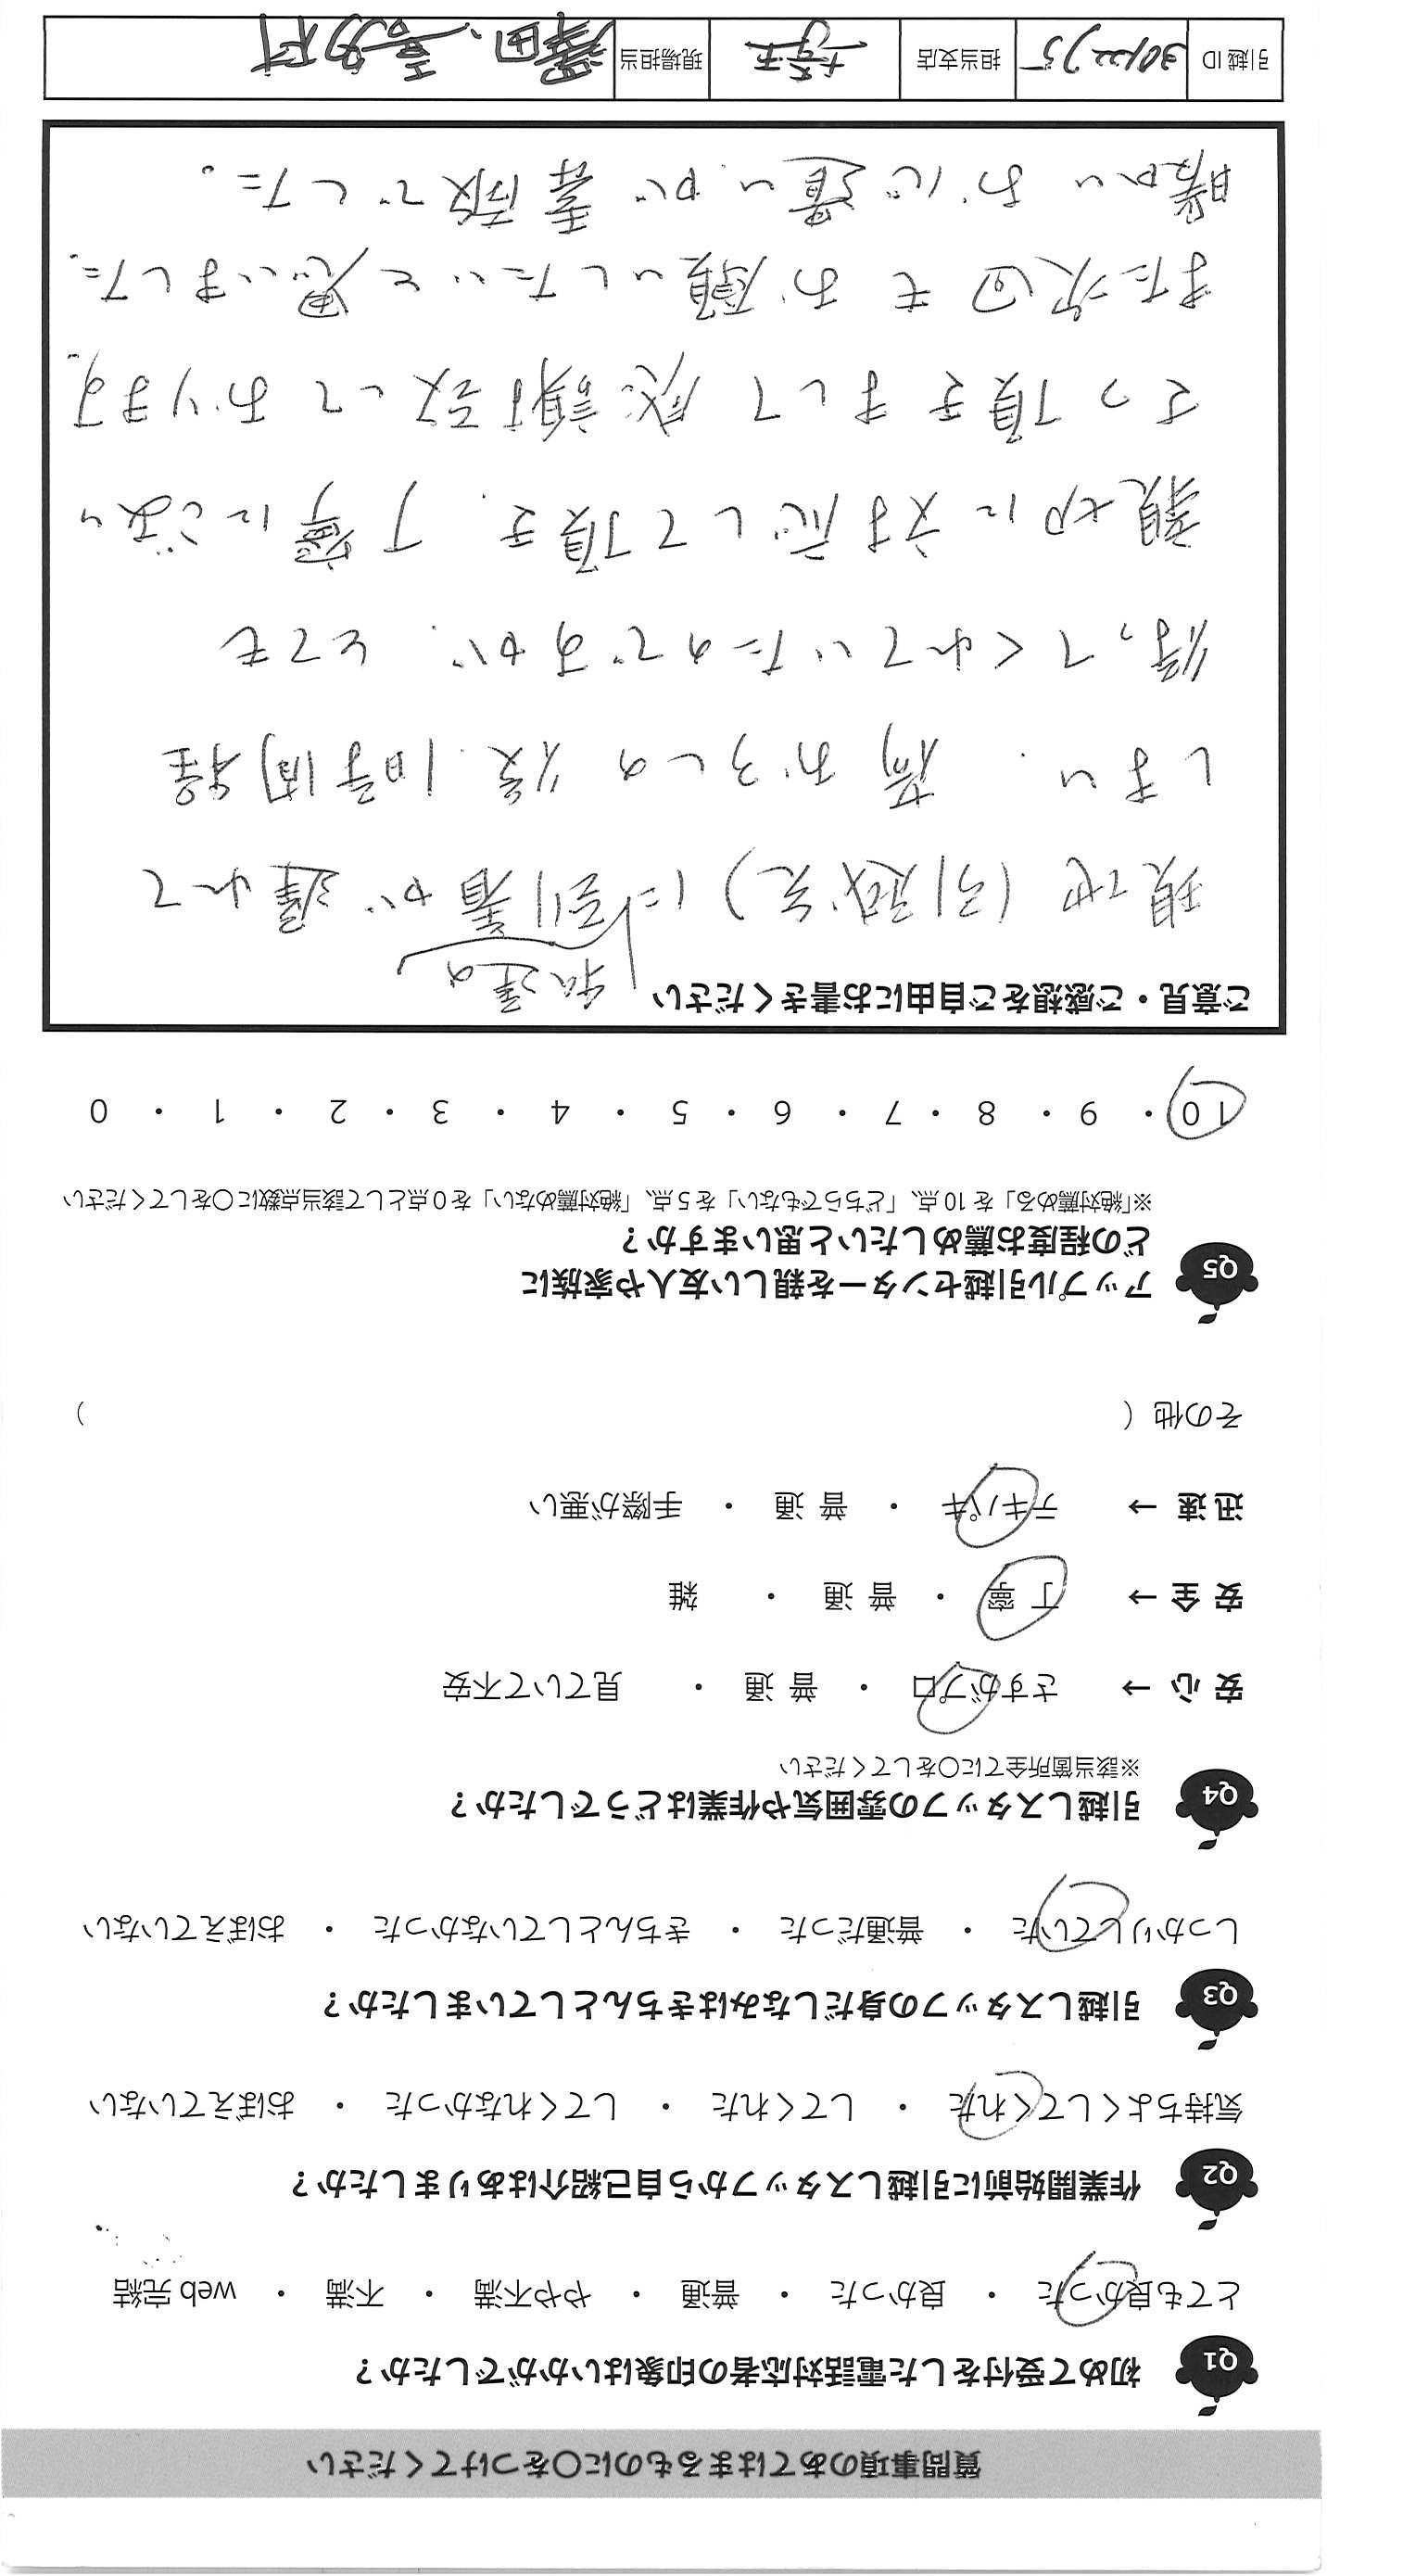 質問事項のあてはまるものに〇をつけてください
Q1 初めて受付をした電話対応者の印象はいかがでしたか？
とても良かった ・ 良かった ・ 普通 ・ やや不満 ・ 不満 ・ web 完結
Q2 作業開始前に引越しスタッフから自己紹介はありましたか？
気持ちよくしてくれた ・ してくれた ・ してくれなかった ・ おぼえていない
Q3 引越しスタッフの身だしなみはきちんとしていましたか？
しっかりしていた ・ 普通だった ・ きちんとしていなかった ・ おぼえていない
Q4 引越しスタッフの雰囲気や作業はどうでしたか？
※該当箇所全てに〇をしてください
安心 → さすがプロ ・ 普通 ・ 見ていて不安
安全 → 丁寧 ・ 普通 ・ 雑
迅速 → テキパキ ・ 普通 ・ 手際が悪い
その他（ ）
Q5 アップル引越センターを親しい友人や家族に
どの程度お薦めしたいと思いますか？
※「絶対薦める」を 10 点、「どちらでもない」を 5 点、「絶対薦めない」を 0 点として該当点数に〇をしてください
10 ・ 9 ・ 8 ・ 7 ・ 6 ・ 5 ・ 4 ・ 3 ・ 2 ・ 1 ・ 0
ご意見・ご感想をご自由にお書きください
私達の
現地（引越先）に到着が遅れて
しまい、荷おろしの後、1時間程
待ってくれていたのですが、とても
親切に対応して頂き、丁寧にご
さつ頂きまして感謝致しております。
また次回もお願いしたいと思いました。
暖かいお心遣いが素敵でした。
引越 ID 担当支店 埼玉 現場担当 澤田、喜多村